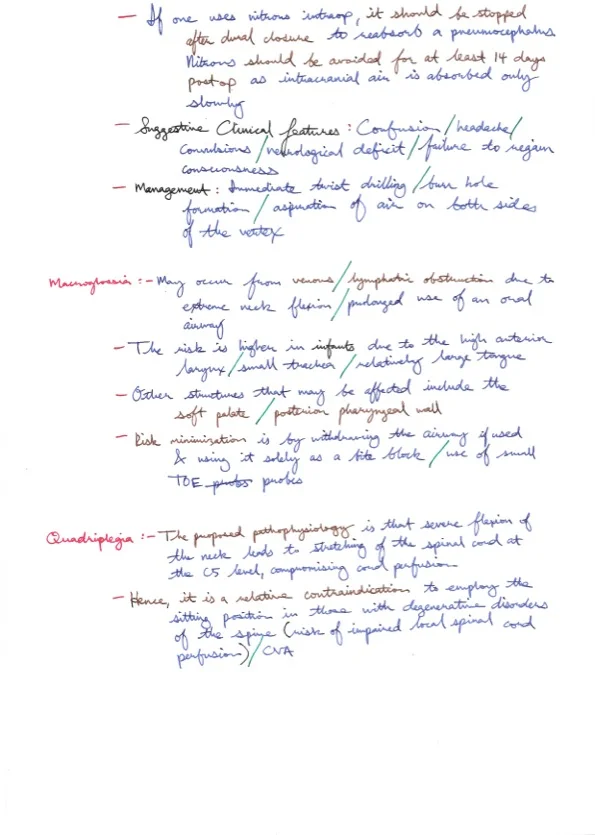 — If one uses nitrous intraop, it should be stopped
after dural closure to reabsorb a pneumocephalus
Nitrous should be avoided for at least 14 days
postop as intracranial air is absorbed only
slowly
— Suggestive Clinical features : Confusion / headache /
Convulsions / neurological deficit / failure to regain
consciousness
— Management : Immediate twist drilling / burr hole
formation / aspiration of air on both sides
of the vertex
Macroglossia :- May occur from venous / lymphatic obstruction due to
extreme neck flexion / prolonged use of an oral
airway
— The risk is higher in infants due to the high anterior
larynx / small trachea / relatively large tongue
— Other structures that may be affected include the
soft palate / posterior pharyngeal wall
— Risk minimization is by withdrawing the airway if used
& using it solely as a bite block / use of small
TOE probes probes
Quadriplegia :- The proposed pathophysiology is that severe flexion of
the neck leads to stretching of the spinal cord at
the C5 level, compromising cord perfusion
— Hence, it is a relative contraindication to employ the
sitting position in those with degenerative disorders
of the spine (risk of impaired local spinal cord
perfusion) / CVA